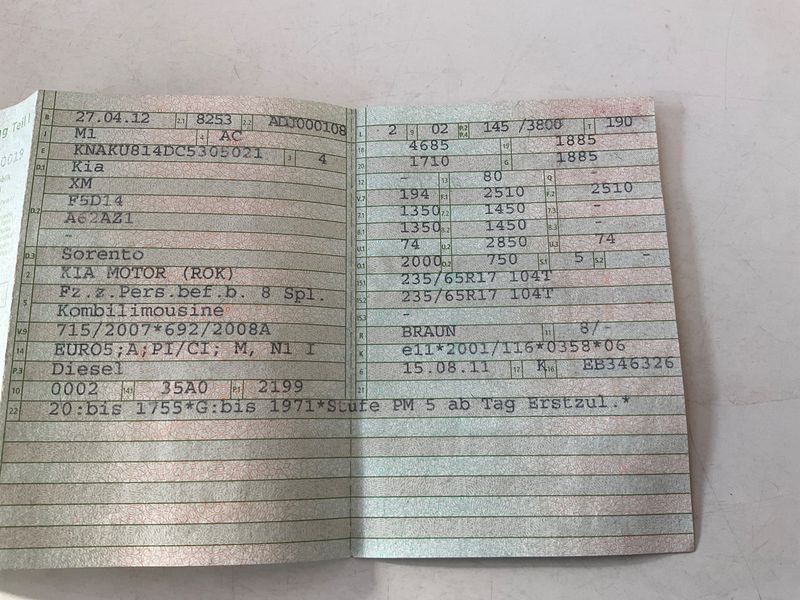 ng Teil I
0019
B 27.04.12 2.1 8253 2.2 ADJ000108
J M1 4 AC
E KNAKU814DC5305021 3 4
D.1 Kia
XM
D.2 F5D14
A62AZ1
-
D.3 Sorento
2 KIA MOTOR (ROK)
5 Fz.z.Pers.bef.b. 8 Spl.
Kombilimousine
V.9 715/2007*692/2008A
14 EURO5;A;PI/CI; M, N1 I
P.3 Diesel
10 0002 14.1 35A0 P.1 2199
L 2 9 02 P.2 P.4 145 /3800 T 190
18 4685 19 1885
20 1710 G 1885
- 13 80 Q -
V.7 194 F.1 2510 F.2 2510
7.1 1350 7.2 1450 7.3 -
8.1 1350 8.2 1450 8.3 -
U.1 74 U.2 2850 U.3 74
O.1 2000 O.2 750 S.1 5 S.2 -
15.1 235/65R17 104T
15.2 235/65R17 104T
15.3 -
R BRAUN 11 8/-
K e11*2001/116*0358*06
6 15.08.11 17 K 16 EB346326
21
22 20:bis 1755*G:bis 1971*Stufe PM 5 ab Tag Erstzul.*